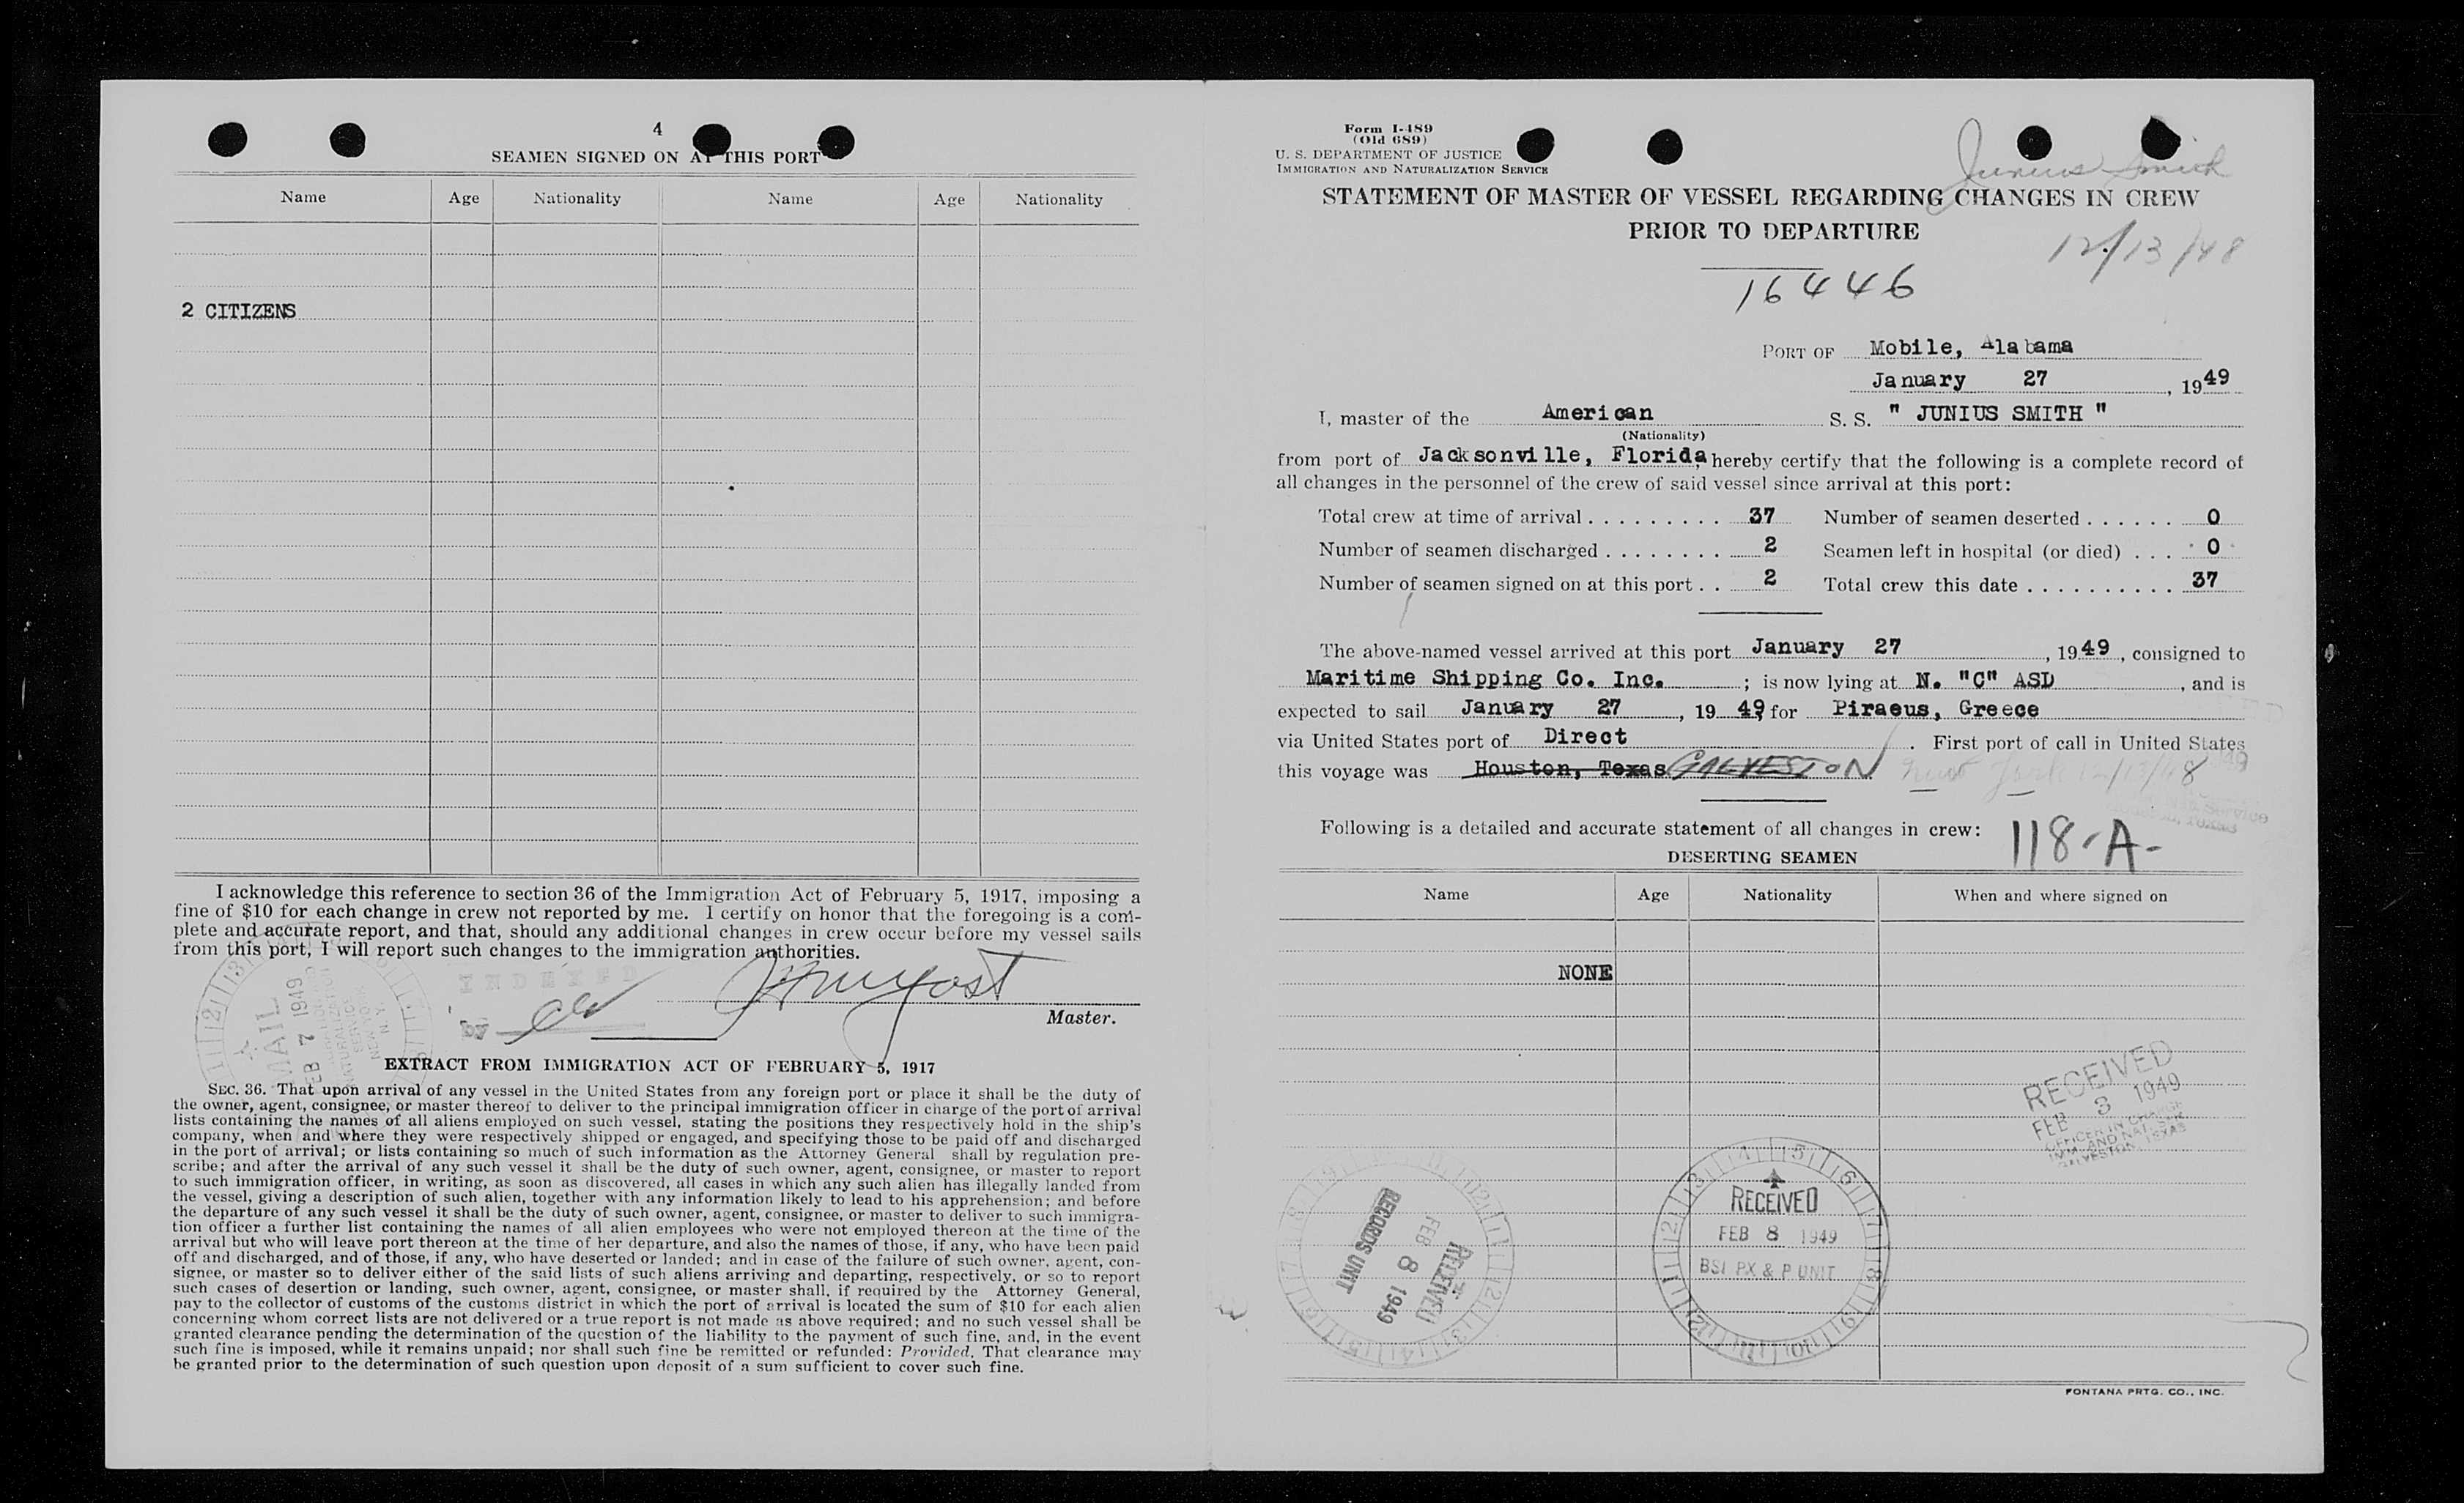 4
SEAMEN SIGNED ON AT THIS PORT
Name Age Nationality Name Age Nationality
2 CITIZENS
I acknowledge this reference to section 36 of the Immigration Act of February 5, 1917, imposing a
fine of $10 for each change in crew not reported by me. I certify on honor that the foregoing is a com-
plete and accurate report, and that, should any additional changes in crew occur before my vessel sails
from this port, I will report such changes to the immigration authorities.
INDEXED
by
Master.
MAIL
FEB 7 1949
EXTRACT FROM IMMIGRATION ACT OF FEBRUARY 5, 1917
SEC. 36. That upon arrival of any vessel in the United States from any foreign port or place it shall be the duty of
the owner, agent, consignee, or master thereof to deliver to the principal immigration officer in charge of the port of arrival
lists containing the names of all aliens employed on such vessel, stating the positions they respectively hold in the ship's
company, when and where they were respectively shipped or engaged, and specifying those to be paid off and discharged
in the port of arrival; or lists containing so much of such information as the Attorney General shall by regulation pre-
scribe; and after the arrival of any such vessel it shall be the duty of such owner, agent, consignee, or master to report
to such immigration officer, in writing, as soon as discovered, all cases in which any such alien has illegally landed from
the vessel, giving a description of such alien, together with any information likely to lead to his apprehension; and before
the departure of any such vessel it shall be the duty of such owner, agent, consignee, or master to deliver to such immigra-
tion officer a further list containing the names of all alien employees who were not employed thereon at the time of the
arrival but who will leave port thereon at the time of her departure, and also the names of those, if any, who have been paid
off and discharged, and of those, if any, who have deserted or landed; and in case of the failure of such owner, agent, con-
signee, or master so to deliver either of the said lists of such aliens arriving and departing, respectively, or so to report
such cases of desertion or landing, such owner, agent, consignee, or master shall, if required by the Attorney General,
pay to the collector of customs of the customs district in which the port of arrival is located the sum of $10 for each alien
concerning whom correct lists are not delivered or a true report is not made as above required; and no such vessel shall be
granted clearance pending the determination of the question of the liability to the payment of such fine, and, in the event
such fine is imposed, while it remains unpaid; nor shall such fine be remitted or refunded: Provided, That clearance may
be granted prior to the determination of such question upon deposit of a sum sufficient to cover such fine.
Form I-489
(Old 689)
U. S. DEPARTMENT OF JUSTICE
IMMIGRATION AND NATURALIZATION SERVICE
Junius Smith
STATEMENT OF MASTER OF VESSEL REGARDING CHANGES IN CREW
PRIOR TO DEPARTURE
12/13/48
16446
PORT OF Mobile, Alabama
January 27, 1949
I, master of the American S. S. " JUNIUS SMITH "
(Nationality)
from port of Jacksonville, Florida, hereby certify that the following is a complete record of
all changes in the personnel of the crew of said vessel since arrival at this port:
Total crew at time of arrival . . . . . . . . . 37 Number of seamen deserted . . . . . . 0
Number of seamen discharged . . . . . . . . 2 Seamen left in hospital (or died) . . . 0
Number of seamen signed on at this port . . 2 Total crew this date . . . . . . . . . . 37
The above-named vessel arrived at this port January 27, 1949, consigned to
Maritime Shipping Co. Inc. ; is now lying at N. "C" ASD, and is
expected to sail January 27, 1949, for Piraeus, Greece
via United States port of Direct. First port of call in United States
this voyage was Houston, Texas GALVESTON New York 12/13/48
Following is a detailed and accurate statement of all changes in crew: 118-A-
DESERTING SEAMEN
Name Age Nationality When and where signed on
NONE
RECEIVED
FEB 3 1949
OFFICER IN CHARGE
IMM. AND NAT. SER
GALVESTON, TEXAS
RECEIVED
FEB 8 1949
RECORDS UNIT
RECEIVED
FEB 8 1949
BSI PX & P UNIT
FONTANA PRTG. CO., INC.